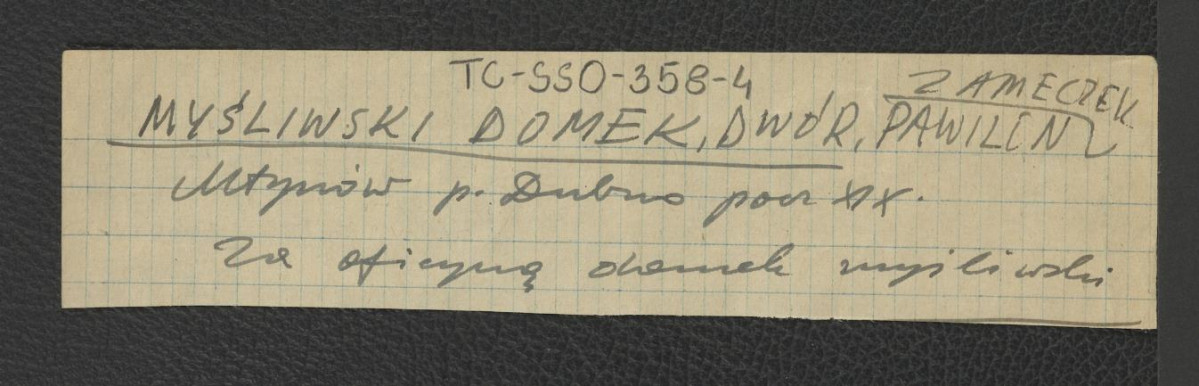 TC-SSO-358-4
ZAMECZEK
MYŚLIWSKI DOMEK, DWÓR, PAWILON
Młynów p. Dubno pocz XIX.
Za oficyną domek myśliwski